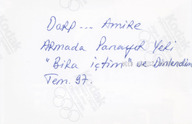 Darp... Amire
Armada Panayır Yeri
"Bira içtim ve Dinlendim
Tem. 97.